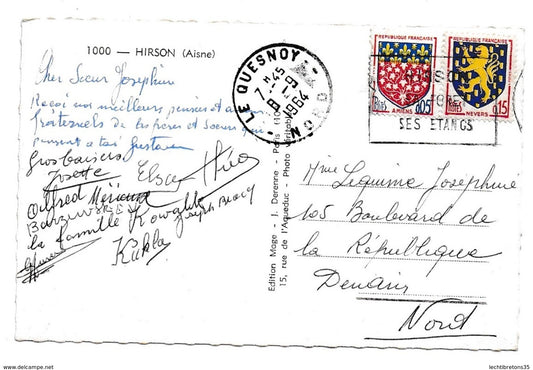 1000 — HIRSON (Aisne)
Cher Soeur Josephine
Reçoi nos meilleurs pensées et
fraternels de tes frères et soeurs qui
pensent a toi Gustave
Gros baisers
Josette
Elsa
Théo
Alfred
la famille Kowalik
Joseph
Kukla
Edition Mage - J. Derenne - Paris 110
15, rue de l'Aqueduc - Photo Véritable
LE QUESNOY
NORD
7-45
9-1
1964
REPUBLIQUE FRANÇAISE
POSTES
0,05
AMIENS
REPUBLIQUE FRANÇAISE
POSTES
0,15
NEVERS
HIRSON
SES ETANGS
Mme Lequime Joséphine
105 Boulevard de
la République
Denain
Nord
https://www.delcampe.net
lechtibretons35